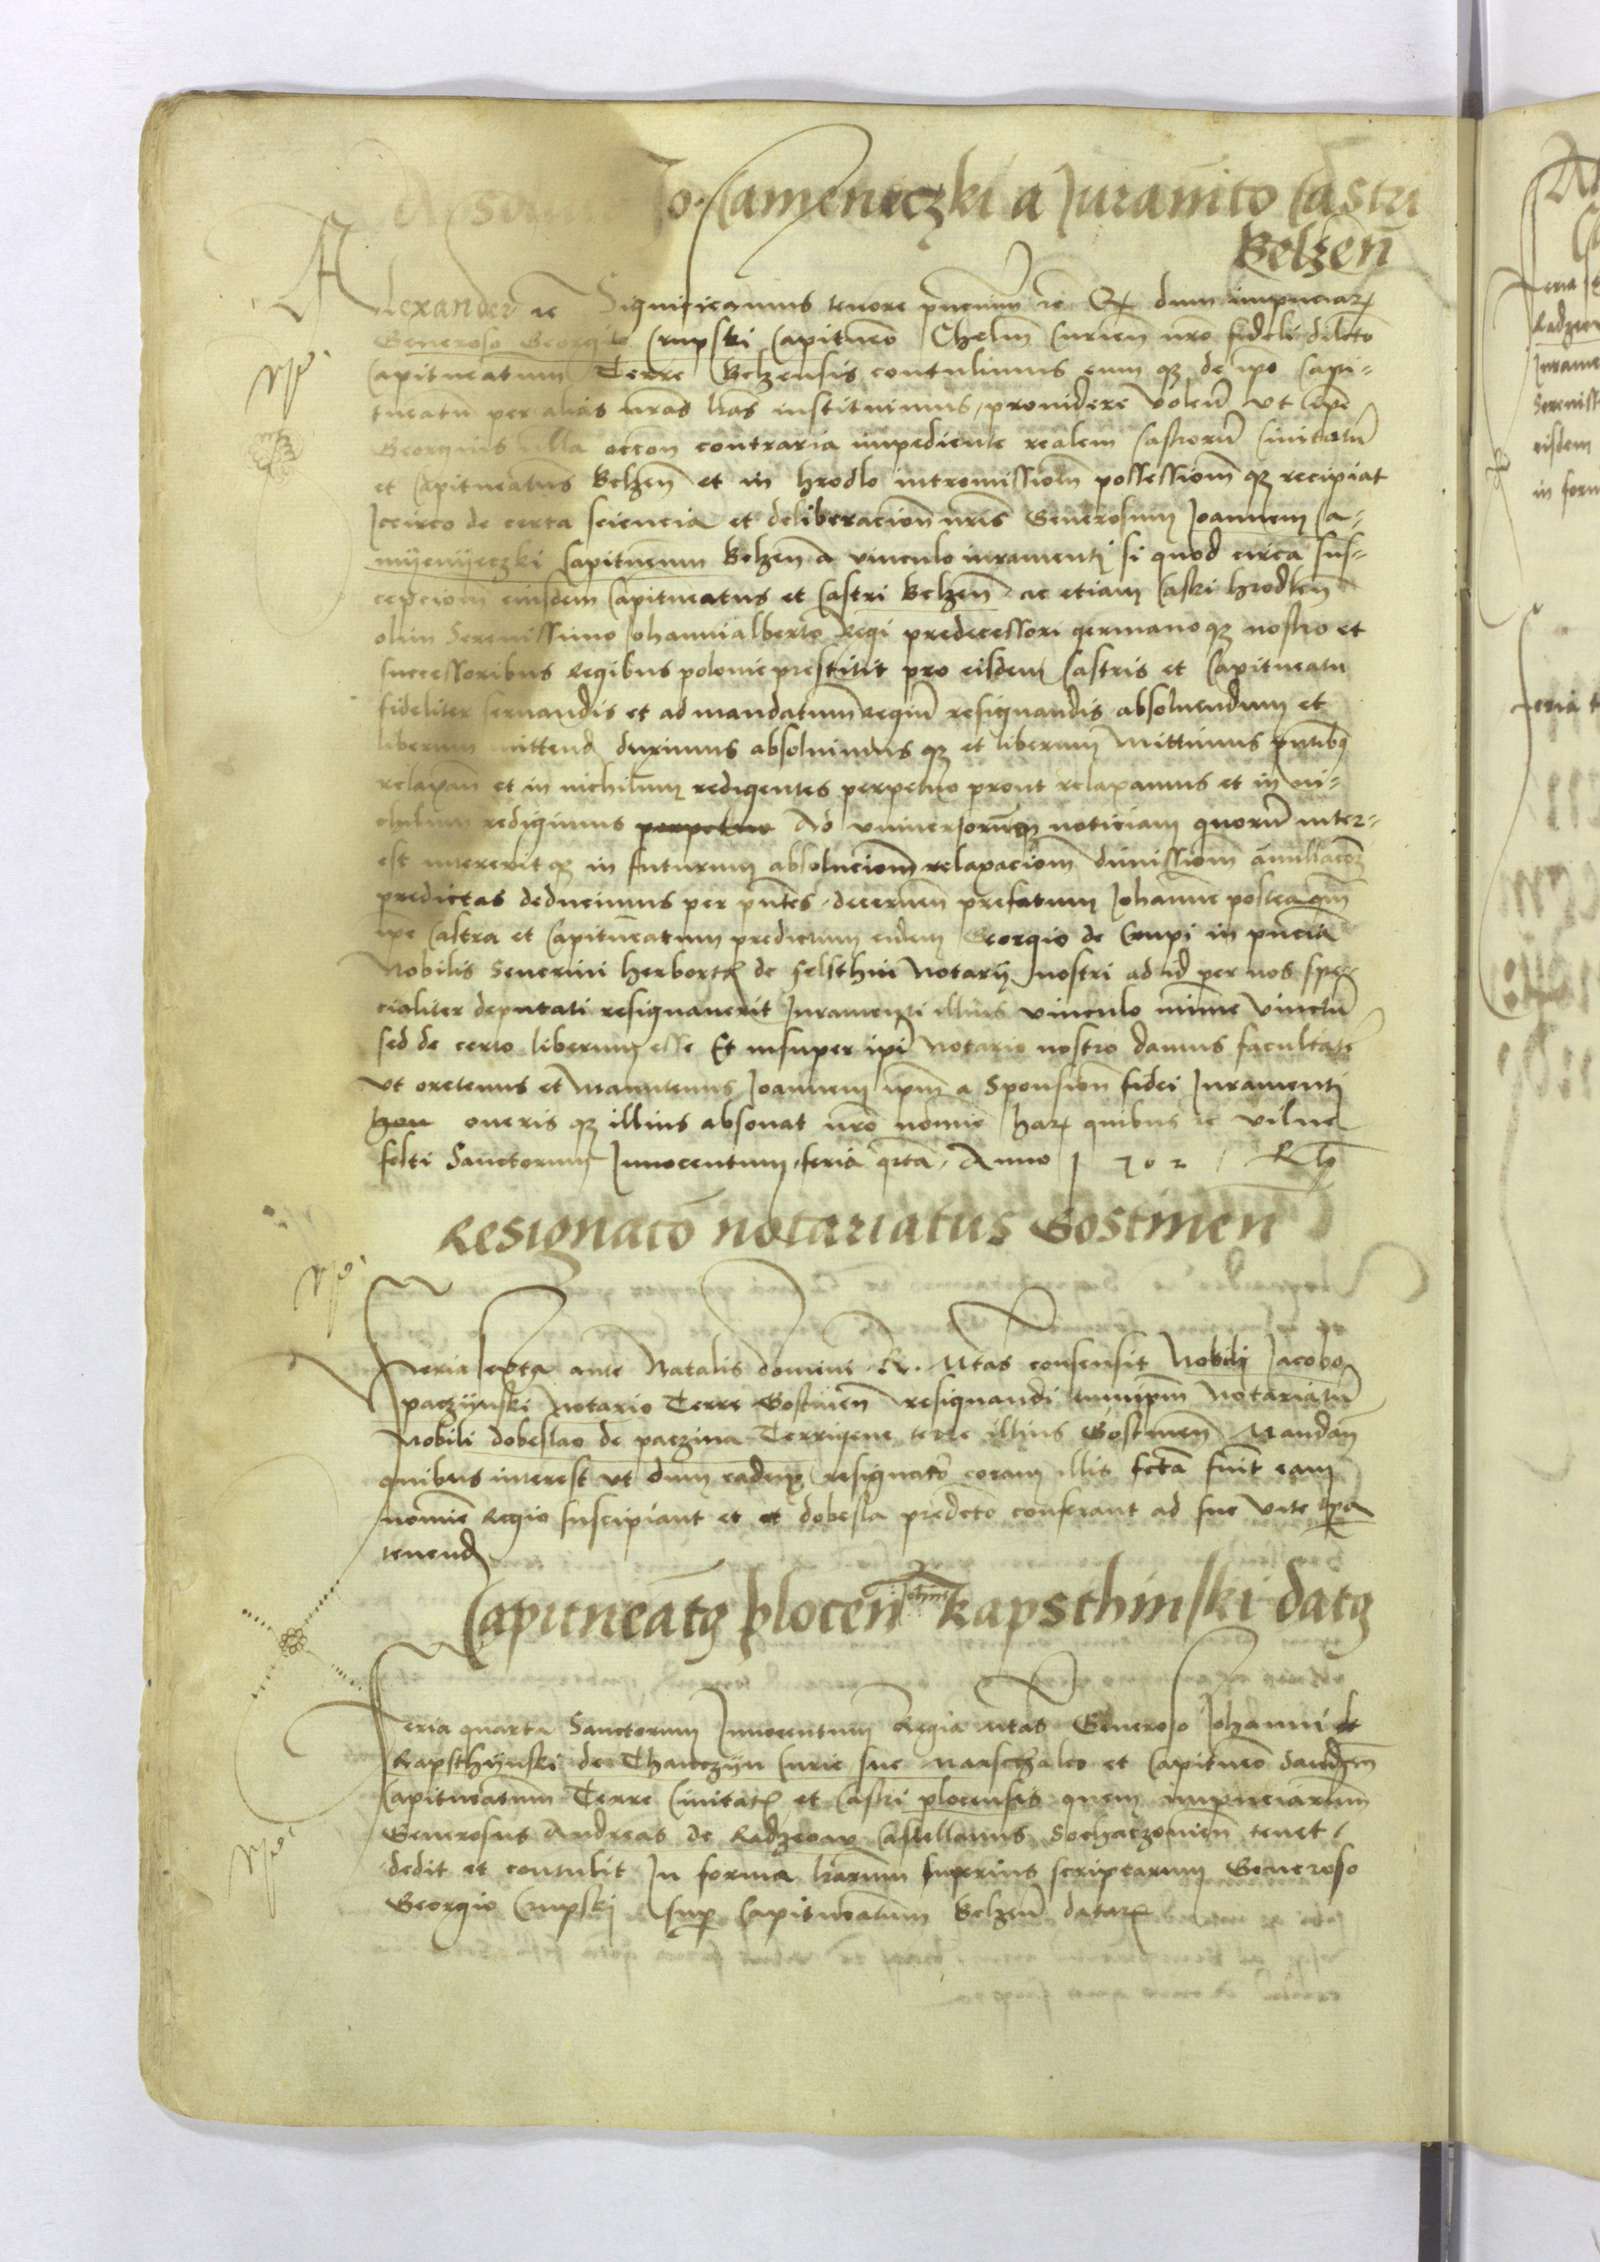 Absol Jo. Camenieczki a Juramto Castri
Belzen
Alexander rc Significamus tenore pncium rc Q dum impnciar
Generoso Georgio Crupski Capitneo Chelm Curien nro fideli dilcto
Capitneatum Terre Belzensis contulimus eum q de ipo Capi-
tneatu per alias nras lras instituimus, providere volen ut ipe
Georgius ulla occon contraria impediente realem Castroru Civitatu
et Capitneatus Belzen et in hrodlo intromissiom possessiom q recipiat
Iccirco de certa sciencia et deliberacion nris Generosum Joannem Ca-
myenyeczki Capitneum Belzen a vinculo iuramenti si quod circa sus-
cepciom eiusdem Capitneatus et Castri Belzen ac etiam Castri hrodlen
olim Serenissimo Johannialberto Regi predecessori germano q nostro et
successoribus Regibus polonie prestitit pro eisdem Castris et Capitneatu
fideliter servandis et ad mandatum Regiu resignandis absolvendum et
liberum mittend duximus absolvimus q et liberum mittimus pntibq
relaxan et in nichilum redigentes perpetuo prout relaxamus et in ni-
chilum redigimus perpetuo Ad universorumq noticiam quoru inter-
est intererit q in futurum absoluciom relaxaciom dimissiom anullacom
predictas deducimus per pntes, decernen prefatum Johanne postea qm
ipe Castra et Capitneatum predictum eidem Georgio de Crupi in pncia
Nobilis Severini herborth de felsthin Notarij nostri ad id per nos spe-
cialiter deputati resignaverit Juramenti illius vinculo mime vinctu
sed de certo liberum esse Et insuper ipi Notario nostro damus facultate
ut oretenus et manutenus Joannem ipm a Sponsion fidei Juramenti
hon oneris q illius absolvat nro nomie har quibus rc vilne
festi Sanctorum Innocentum feria qrta, Anno 1 5 0 2 / Rh
Resignaco notariatus Gostinen
Feria sexta ante Natalis domini R. Mtas consensit Nobili Jacobo
paczynski Notario Terre Gostinen resignandi eumipm Notariatu
Nobili dobeslao de paczina Terrigene terre illius Gostinen Mandan
quibus interest ut dum eademq resignaco coram illis fcta fuit eam
nomie Regio suscipiant et et dobesla predcto conferant ad sue vite tpa
tenend
Capitneatq plocen Johni Kapsthinski datq
Feria quarta Sanctorum Innocentum Regia Mtas Generoso Johanni de
Kapsthynski de Thanczyn Curie sue Marschalco et Capitneo Sandem
Capitneatum Terre Civitat et Castri plocensis quem impnciarum
Generosus Andreas de Radzeovy Castellanus Sochaczovien tenet,
dedit et contulit In forma lrarum superius scriptarum Generoso
Georgio Crupski sup Capitneatum Belzen datar